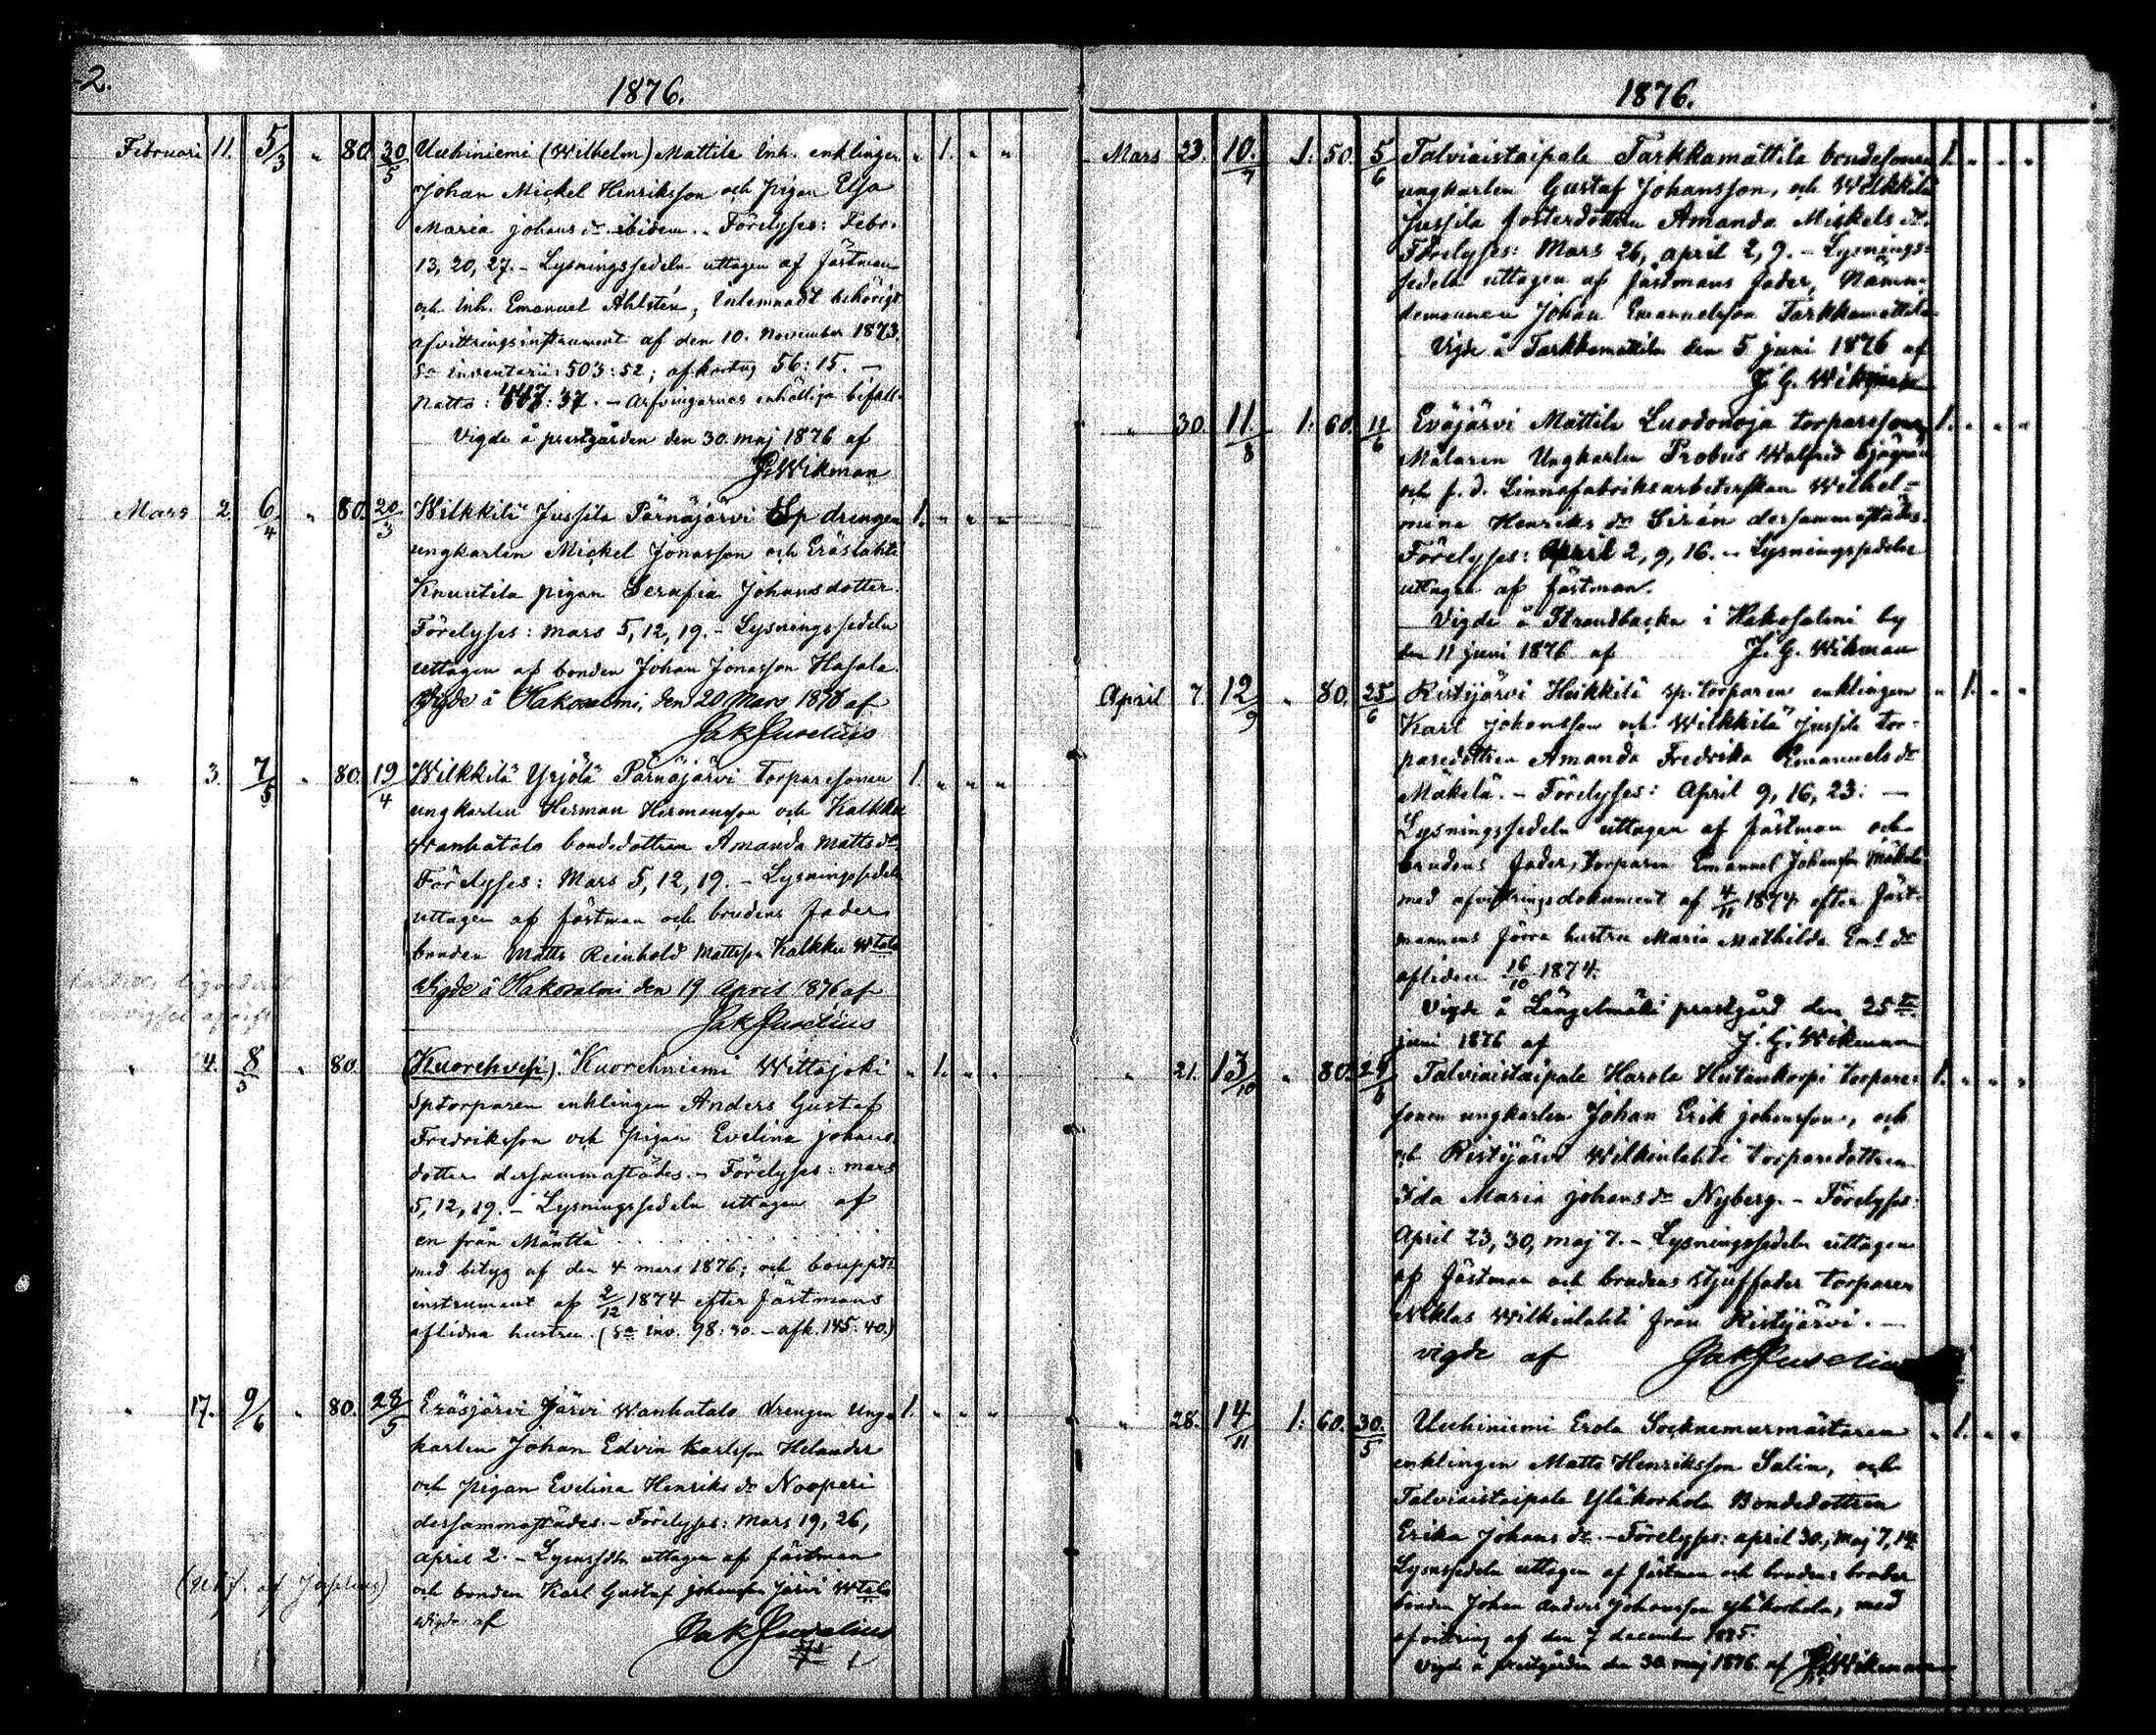 2.
1876.
Februari 11. 5/3 „ 80 30/5 Uuhiniemi (Wilhelm) Mattila Inh. enklingen „ 1. „ „
Johan Mickel Henriksson och pigan Elsa
Maria Johans dr ibidem. - Förelyses: Febr.
13, 20, 27. - Lysningssedeln uttagen af fästman
och Inh. Emanuel Ahlstén, inlemnadt behörigt
afvittringsinstrument af den 10. November 1873,
Sa inventarii 503:52; afkortng 56:15. -
Netto: 447:37. - Arfvingarnas enhälliga bifall.
Vigde å prestgården den 30. maj 1876 af
J. G. Wikman
Mars 2. 6/4 „ 80. 20/3 Wilkkilä Jussila Pärnäjärvi Sp drengen 1. „ „ „
ungkarlen Mickel Jonasson och Eräslahti
Knuutila pigan Serafia Johansdotter.
Förelyses: Mars 5, 12, 19. - Lysningssedeln
uttagen af bonden Johan Jonasson Hasala.
Vigde å Hakosalmi, den 20 Mars 1876 af
Jak Juselius
„ 3. 7/5 „ 80. 19/4 Wilkkilä Yrjölä Pärnäjärvi torparesonen 1. „ „ „
ungkarlen Herman Hermansson och Kalkku
Wanhatalo bondedottren Amanda Matts dr
Förelyses: Mars 5, 12, 19. - Lysningssedeln
uttagen af fästman och brudens fader
bonden Matts Reinhold Mattsson Kalkku Wtalo
Vigde å Hakosalmi den 19 April 1876 af
Jak Juselius
„ 4. 8/5 „ 80. (Kuorehvesi). Kuorehniemi Wittajoki „ 1. „ „
Sptorparen enklingen Anders Gustaf
Fredriksson och pigan Evelina Johans
dotter dersammastädes. - Förelyses: mars
5, 12, 19. - Lysningssedeln uttagen af
en från Mänttä
med betyg af den 4 mars 1876; och boupptr
instrument af 2/12 1874 efter fästmans
aflidna hustru. (Sa inv. 98:30. - afk. 145:40.)
„ 17. 9/6 „ 80. 28/5 Eräsjärvi Järvi Wanhatalo drengen Ung- 1. „ „ „
karlen Johan Edvin Karlsson Helander
och pigan Evelina Henriks dr Nooperi
dersammastädes. - Förelyses: Mars 19, 26,
April 2. - Lysnssdln uttagen af fästman
och bonden Karl Gustaf Johansson Järvi Wtalo
Vigde af
Jak Juselius
1876.
Mars 23. 10./7 1. 50. 5/6 Talviaistaipale Tarkkamattila bondesonen 1. „ „ „
ungkarlen Gustaf Johansson, och Wilkkilä
Jussila fosterdottren Amanda Mickels dr.
Förelyses: Mars 26, april 2, 9. - Lysnings-
sedeln uttagen af fästmans fader, Nämn-
demannen Johan Emanuelsson Tarkkamattila
Vigde å Tarkkamattila den 5 juni 1876 af
J. G. Wikman
„ 30. 11./8 1. 60. 11/6 Eväjärvi Mattila Luodonoja torparesonen 1. „ „ „
Målaren Ungkarlen Probus Walfrid
och f. d. Linnefabriksarbeterskan Wilhel-
mina Henriks dr Sirén dersammastädes.
Förelyses: April 2, 9, 16. - Lysningssedeln
uttagen af fästman.
Vigde å Strandbacka i Hakosalmi by
den 11 juni 1876 af J. G. Wikman
April 7. 12/9 „ 80. 25/6 Ristijärvi Heikkilä sp. torparen enklingen „ 1. „ „
Karl Johansson och Wilkkilä Jussila tor-
paredottren Amanda Fredrika Emanuels dr
Mäkelä. - Förelyses: April 9, 16, 23. -
Lysningssedeln uttagen af fästman och
brudens fader, torparen Emanuel Johansson Mäkelä
med afvittringsdokument af 4/11 1874 efter fäst-
mannens förra hustru Maria Mathilda Eml dr
afliden 16/10 1874.
Vigde å Längelmäki prestgård den 25te
juni 1876 af J. G. Wikman
„ 21. 13/10 „ 80. Talviaistaipale Harola Hutankorpi torpare- 1. „ „ „
sonen ungkarlen Johan Erik Johansson, och
och Ristijärvi Wilkinlahti torparedottren
Ida Maria Johans dr Nyberg. - Förelyses:
April 23, 30, maj 7. - Lysningssedeln uttagen
af fästman och brudens stjuffader torparen
Niklas Wilkinlahti från Ristijärvi. -
vigde af Jak Juselius
„ 28. 14/11 1. 60. 30./5 Uuhiniemi Erola Socknemurmästaren „ 1. „ „
enklingen Matts Henriksson Salin, och
Talviaistaipale Yläkorhola Bondedottren
Erika Johans dr. - Förelyses: april 30, maj 7, 14.
Lysnssedeln uttagen af fästman och brudens broder
bonden Johan Anders Johansson Yläkorhola, med
afvittring af den 7 december 1875.
Vigde å prestgården den 30 maj 1876. af J. G. Wikman